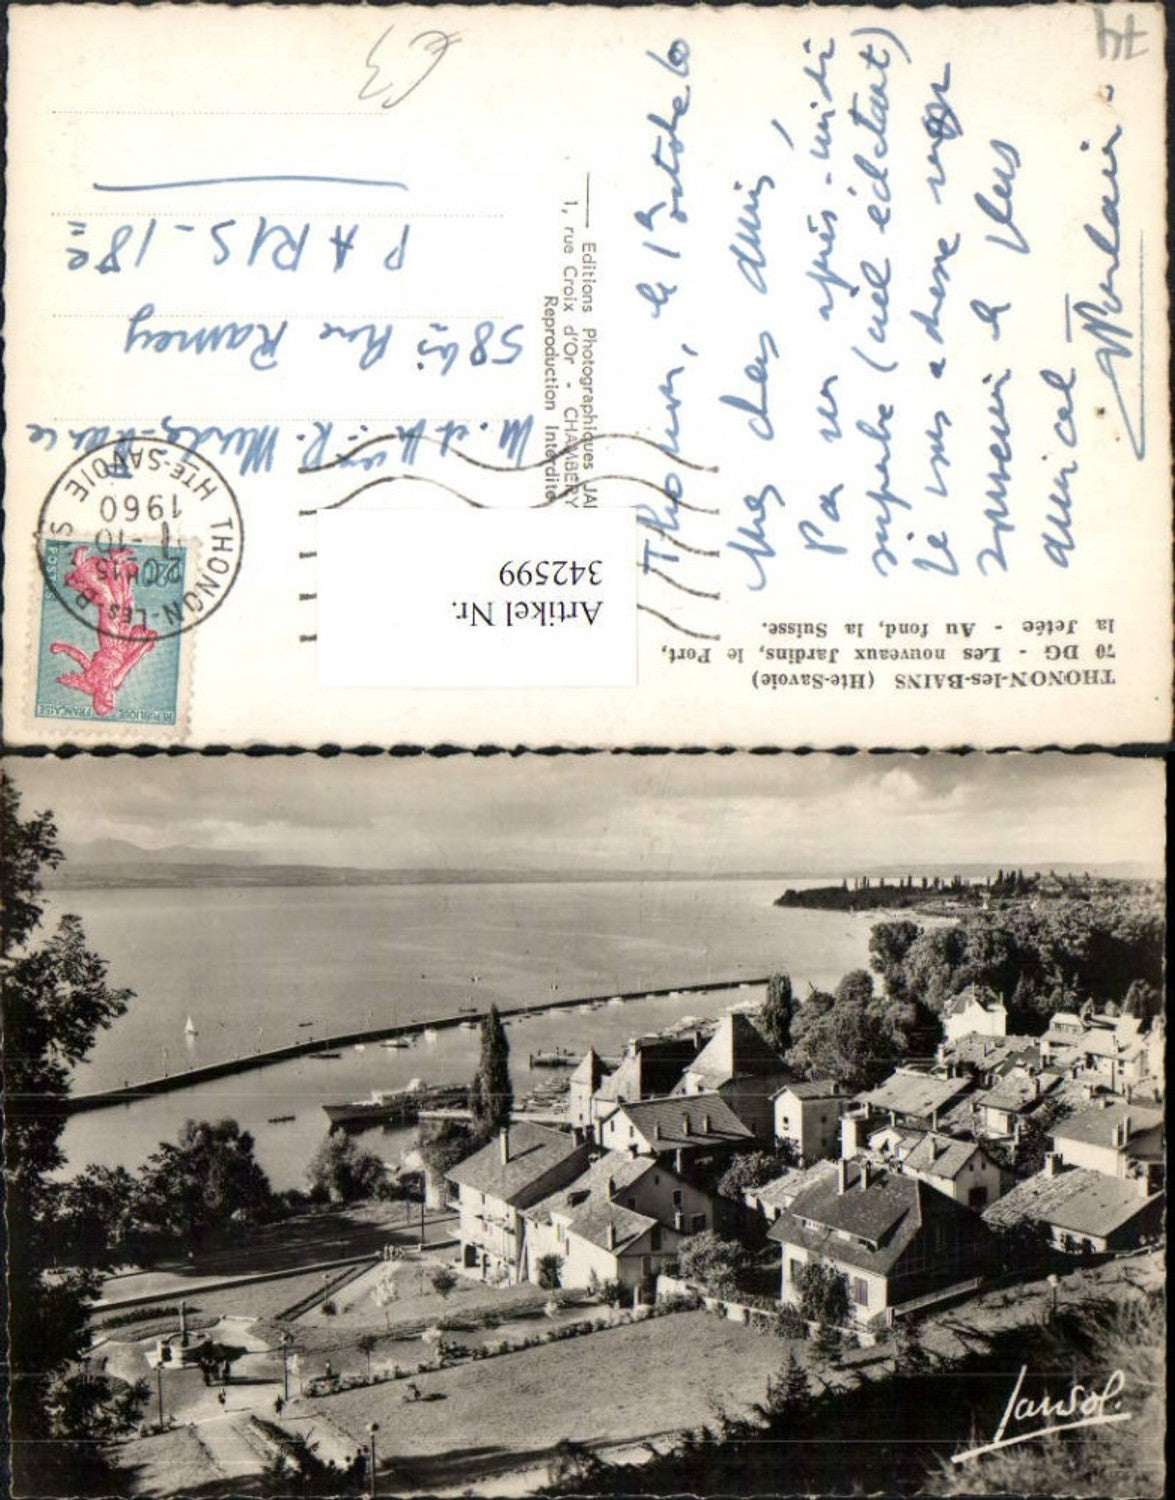 THONON-les-BAINS (Hte-Savoie)
70 DG - Les nouveaux Jardins, le Port,
la Jetée - Au fond, la Suisse.
Thonon, le 1er octobre 60
Mes chers amis,
Par un après-midi
superbe (ciel éclatant)
je vous adresse
souvenir et
amical
Editions Photographiques JA
1, rue Croix d'Or - CHAMBERY
Reproduction Interdite
REPUBLIQUE FRANÇAISE
POSTES
THONON-LES-B
HTE-SAVOIE
20H15
1-10
1960
M. et Mme R.
58 bis Rue Ramey
PARIS-18e
€3
74
Artikel Nr.
342599
Jansol.